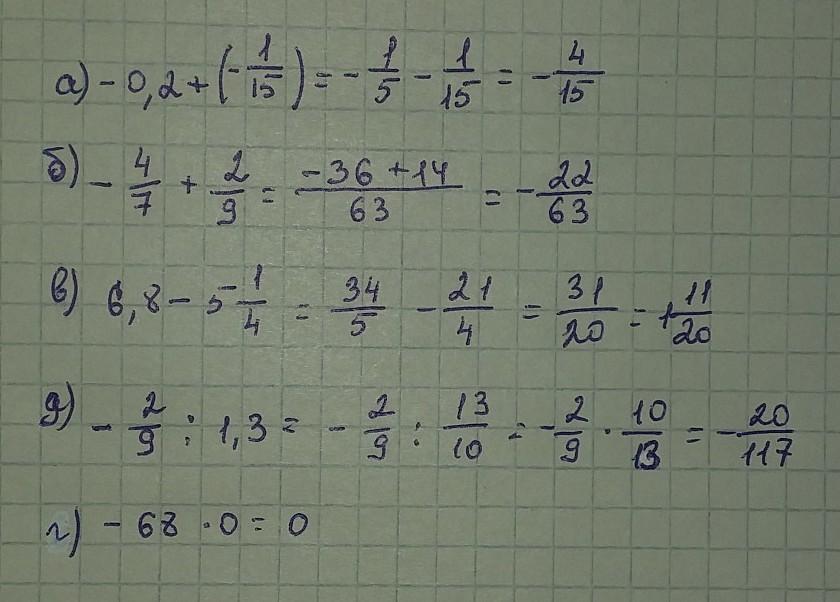 а) - 0,2 + (- 1/15) = - 1/5 - 1/15 = - 4/15
б) - 4/7 + 2/9 = (-36 + 14)/63 = - 22/63
в) 6,8 - 5 1/4 = 34/5 - 21/4 = 31/20 = 1 11/20
д) - 2/9 : 1,3 = - 2/9 : 13/10 = - 2/9 · 10/13 = - 20/117
г) - 68 · 0 = 0